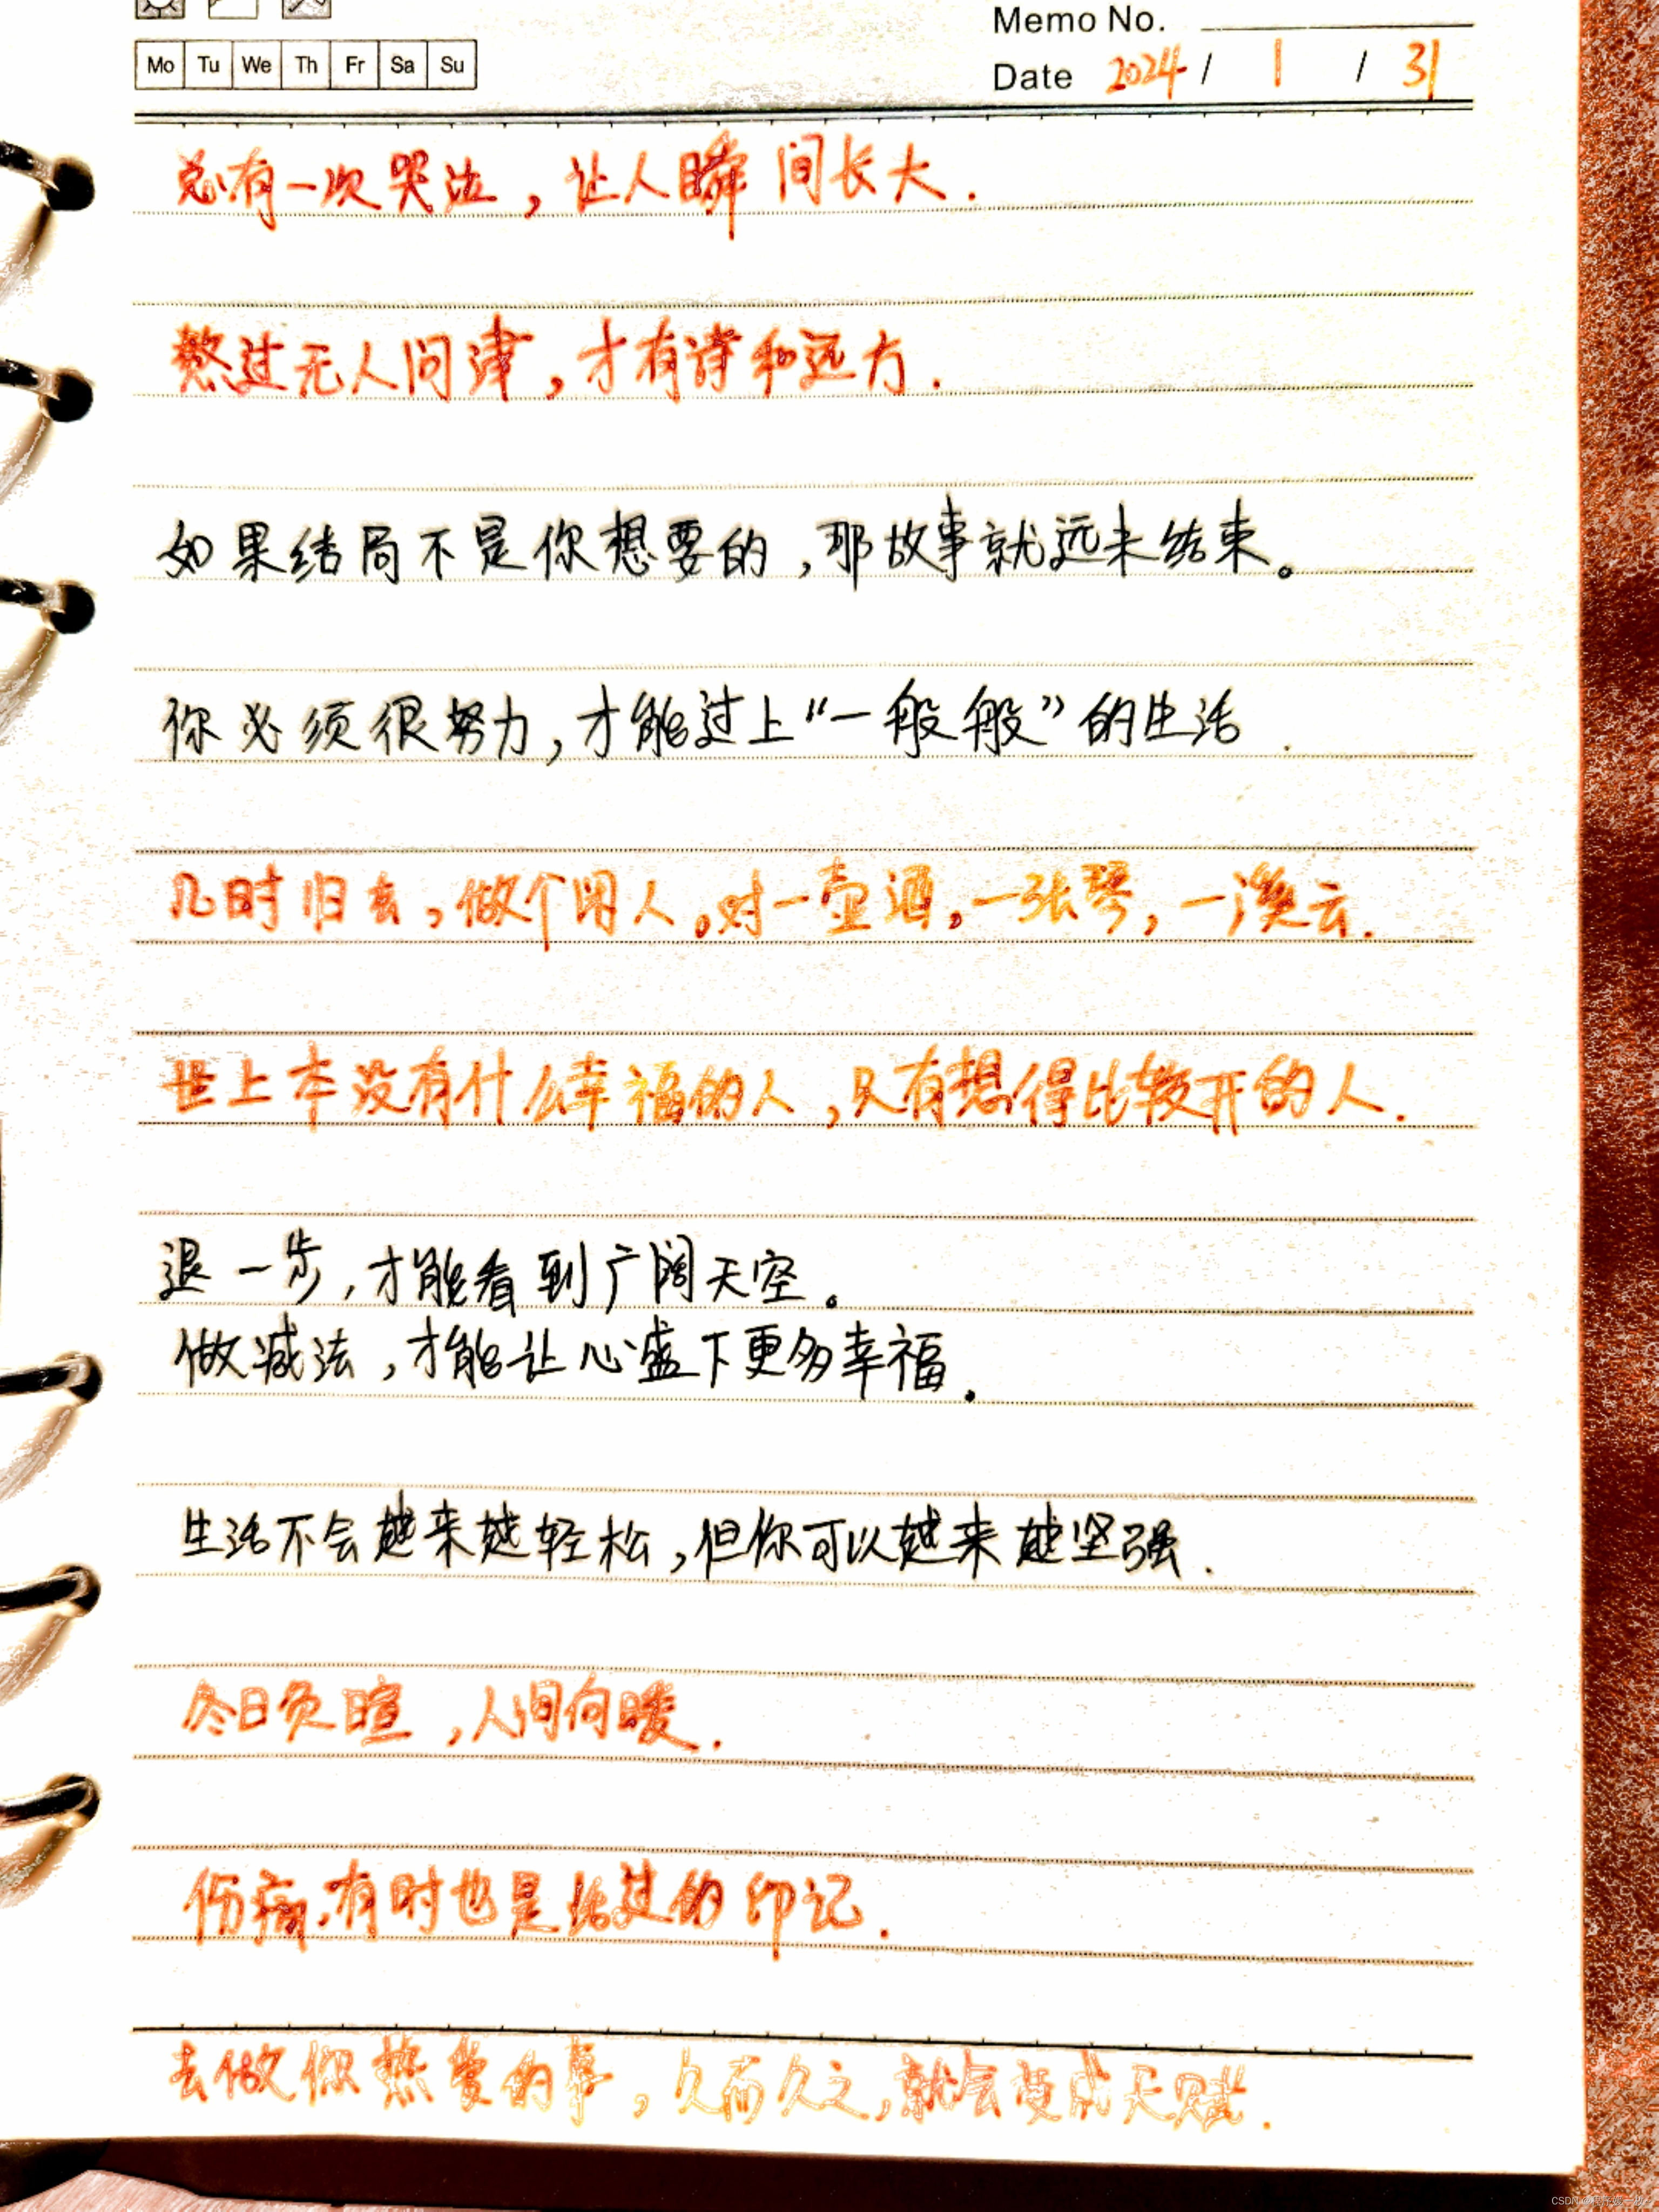 Memo No.
Mo Tu We Th Fr Sa Su
Date 2024 / 1 / 31
总有一次哭泣，让人瞬间长大.
熬过无人问津，才有诗和远方.
如果结局不是你想要的，那故事就远未结束。
你必须很努力，才能过上“一般般”的生活.
几时归去，做个闲人。对一壶酒，一张琴，一溪云.
世上本没有什么幸福的人，只有想得比较开的人.
退一步，才能看到广阔天空。
做减法，才能让心盛下更多幸福.
生活不会越来越轻松，但你可以越来越坚强.
冬日负暄，人间向暖.
伤痛，有时也是活过的印记.
去做你热爱的事，久而久之，就会变成天赋.
CSDN